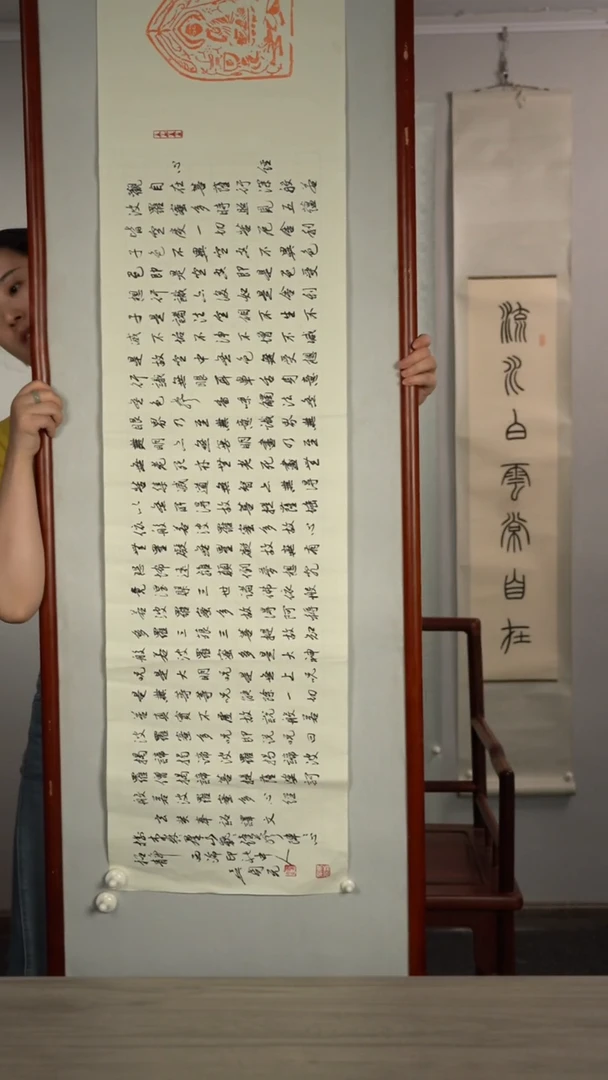 心經
觀自在菩薩行深般若
波羅蜜多時照見五蘊
皆空度一切苦厄舍利
子色不異空空不異色
色即是空空即是色受
想行識亦復如是舍利
子是諸法空相不生不
滅不垢不淨不增不減
是故空中無色無受想
行識無眼耳鼻舌身意
無色聲香味觸法無
眼界乃至無意識界無
無明亦無無明盡乃至
無老死亦無老死盡無
苦集滅道無智亦無得
以無所得故菩提薩埵
依般若波羅蜜多故心
無罣礙無罣礙故無有
恐怖遠離顛倒夢想究
竟涅槃三世諸佛依般
若波羅蜜多故得阿耨
多羅三藐三菩提故知
般若波羅蜜多是大神
咒是大明咒是無上
咒是無等等咒能除一切
苦真實不虛故說般若
波羅蜜多咒即說咒曰
揭諦揭諦波羅揭諦波
羅僧揭諦菩提薩婆訶
般若波羅蜜多心經
玄奘奉詔譯文
流水白雲常自在